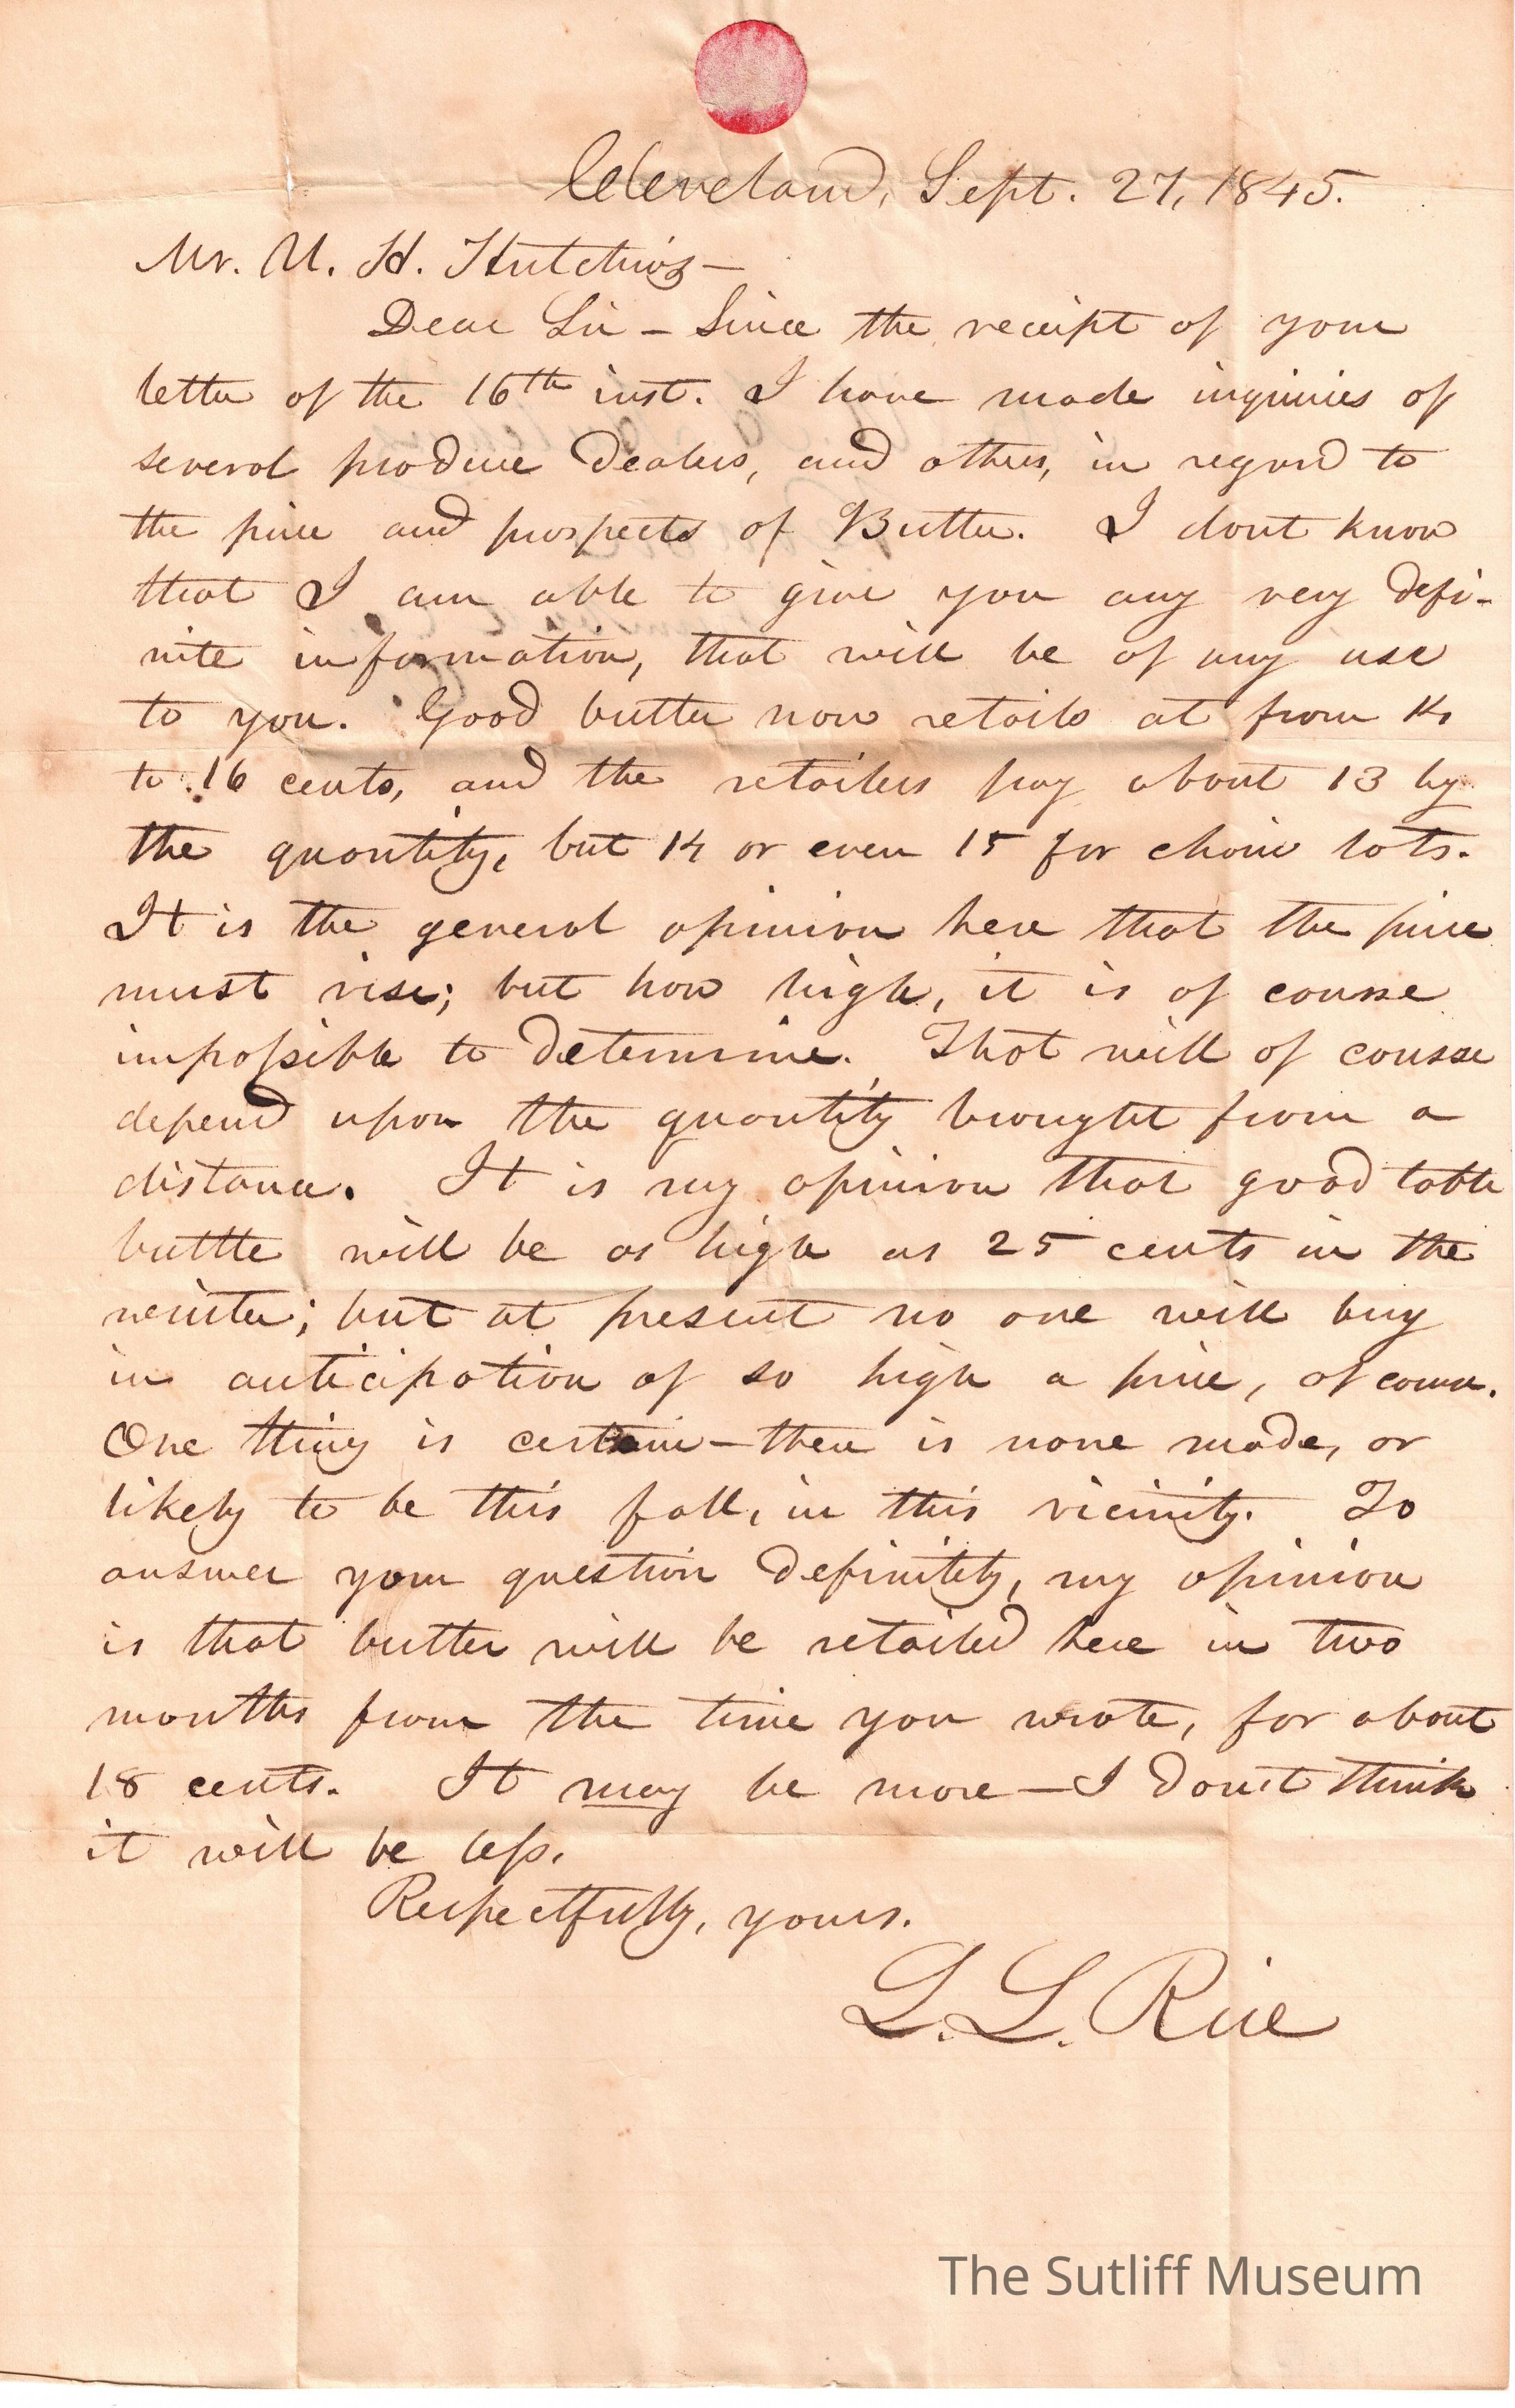 Cleveland, Sept. 27, 1845.
Mr. U. H. Hutchins—
Dear Sir – Since the receipt of your
letter of the 16th inst. I have made inquiries of
several produce dealers, and others, in regard to
the price and prospects of Butter. I dont know
that I am able to give you any very defi-
nite information, that will be of any use
to you. Good butter now retails at from 14
to 16 cents, and the retailers pay about 13 by
the quantity, but 14 or even 15 for choice lots.
It is the general opinion here that the price
must rise; but how high, it is of course
impossible to determine. That will of course
depend upon the quantity brought from a
distance. It is my opinion that good table
buttte will be as high as 25 cents in the
winter; but at present no one will buy
in anticipation of so high a price, of course.
One thing is certain – there is none made, or
likely to be this fall, in this vicinity. To
answer your question definitely, my opinion
is that butter will be retailed here in two
months from the time you wrote, for about
18 cents. It may be more — I don't think
it will be less.
Respectfully, yours.
L. L. Rice
The Sutliff Museum